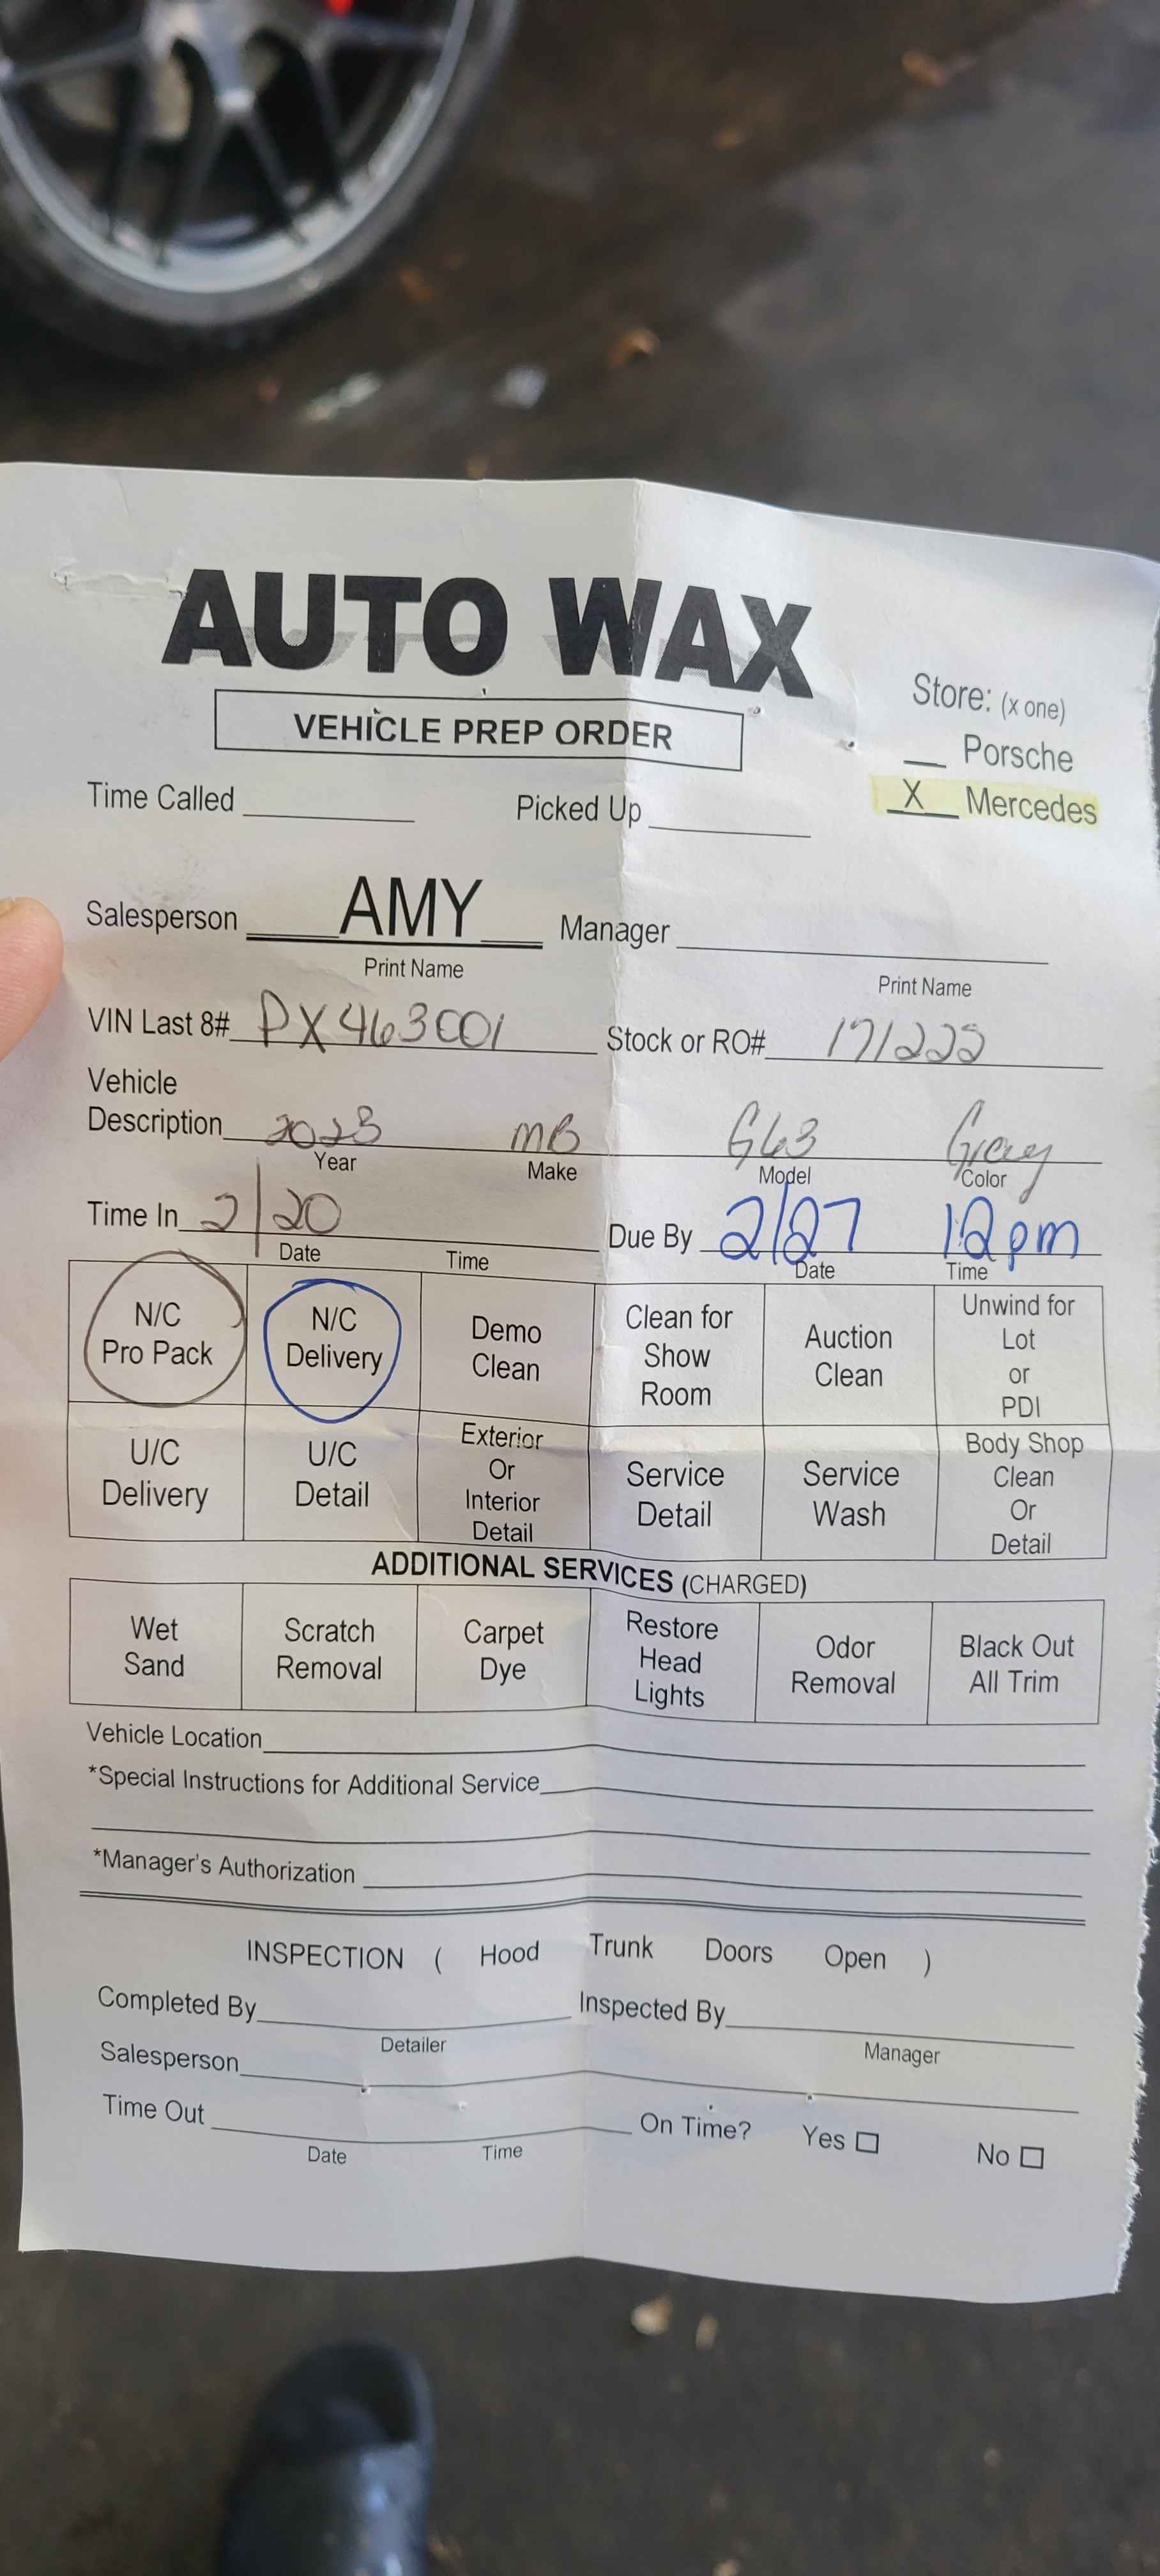 AUTO WAX
VEHICLE PREP ORDER
Store: (x one)
__ Porsche
X Mercedes
Time Called ____ Picked Up ____
Salesperson AMY Manager ____
Print Name Print Name
VIN Last 8# PX463001 Stock or RO# 171222
Vehicle
Description 2023 MB G63 Gray
Year Make Model Color
Time In 2/20 Due By 2/27 12pm
Date Time Date Time
N/C Pro Pack
N/C Delivery
Demo Clean
Clean for Show Room
Auction Clean
Unwind for Lot or PDI
U/C Delivery
U/C Detail
Exterior Or Interior Detail
Service Detail
Service Wash
Body Shop Clean Or Detail
ADDITIONAL SERVICES (CHARGED)
Wet Sand
Scratch Removal
Carpet Dye
Restore Head Lights
Odor Removal
Black Out All Trim
Vehicle Location
*Special Instructions for Additional Service
*Manager's Authorization
INSPECTION ( Hood Trunk Doors Open )
Completed By ____ Inspected By ____
Detailer Manager
Salesperson
Time Out ____ On Time? Yes ☐ No ☐
Date Time